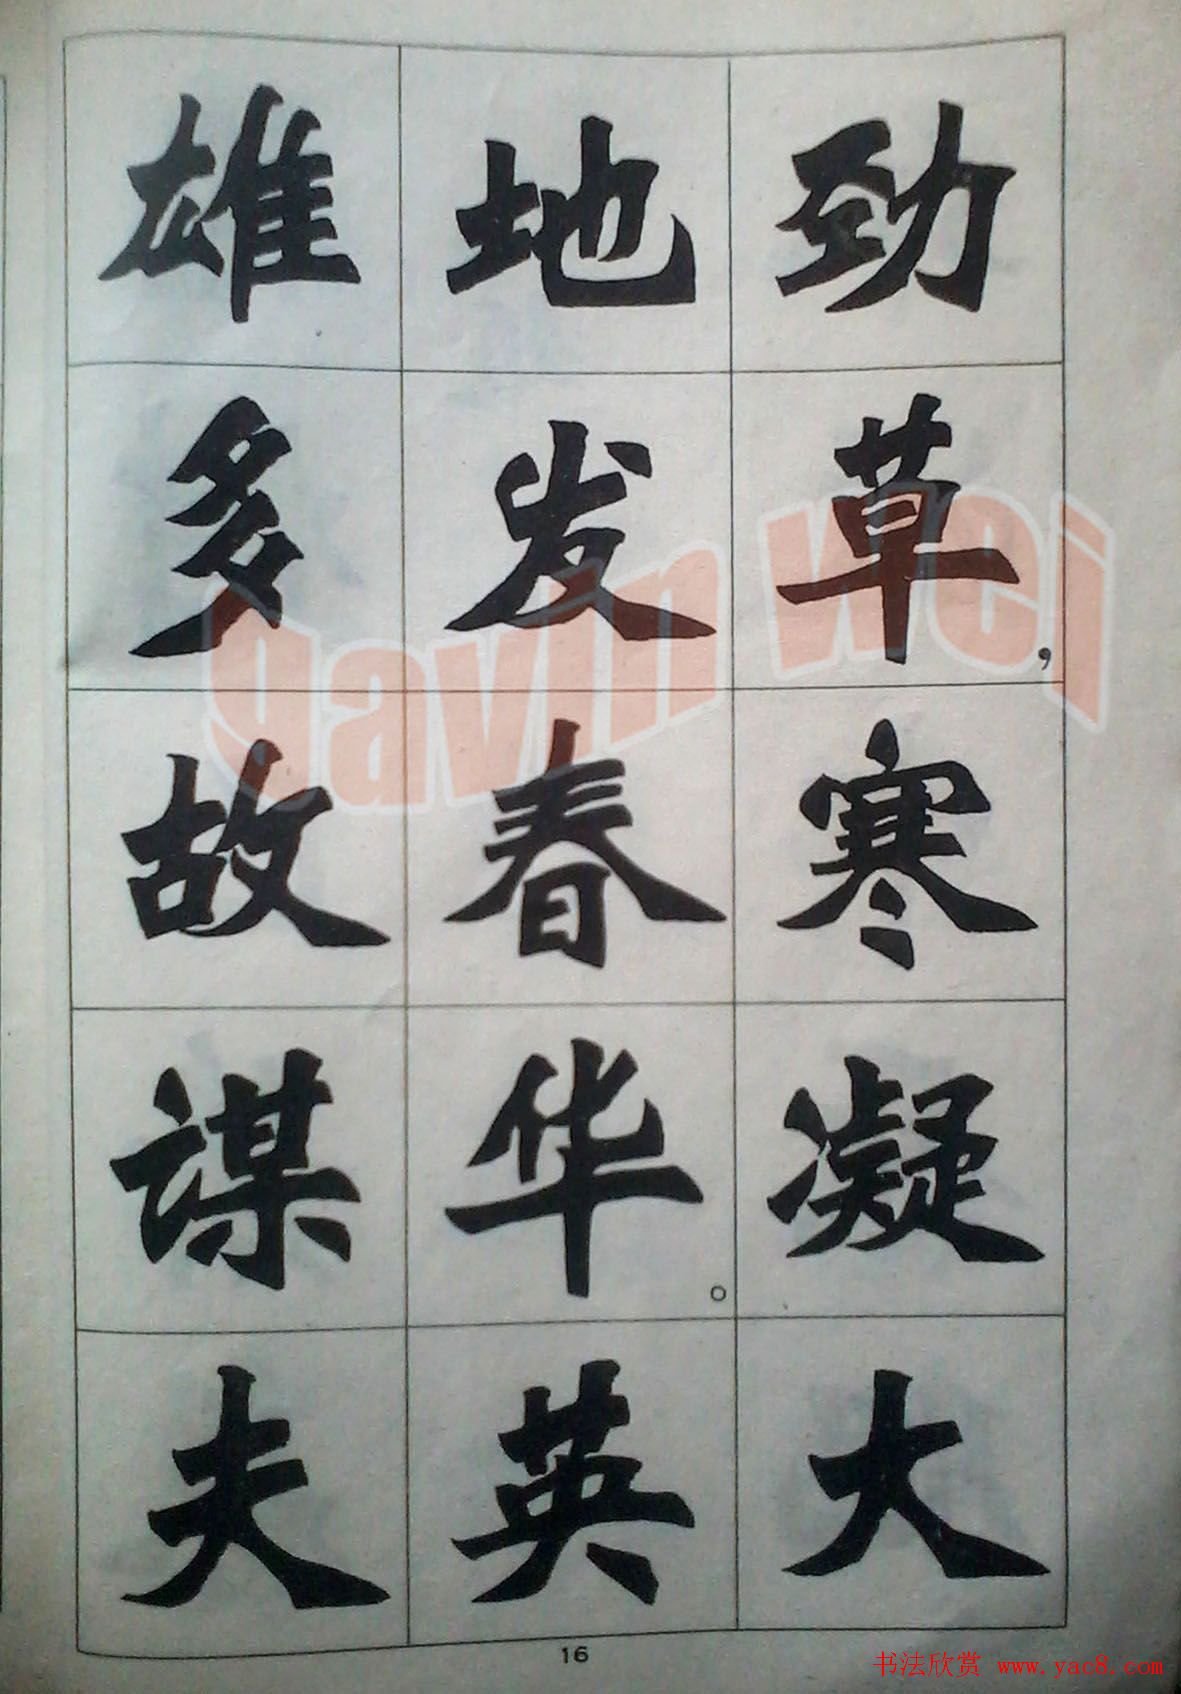 劲草,寒凝大
地发春华。英
雄多故谋夫
16
gavin wei
书法欣赏 www.yac8.com